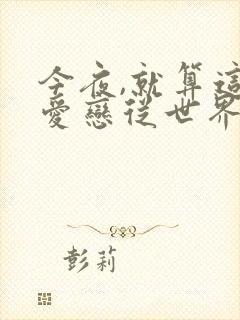 今夜,就算這
愛戀從世界
彭莉